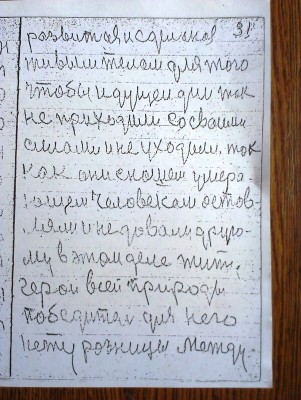 живым телом для того
чтобы идущеи дни так
не приходили со своими
силами и не уходили, так
как они снашем умера
ющем человекам остов-
ляли и не довали друго-
му в этом деле жить,
герои всей природы
победител для него
нету розницы между